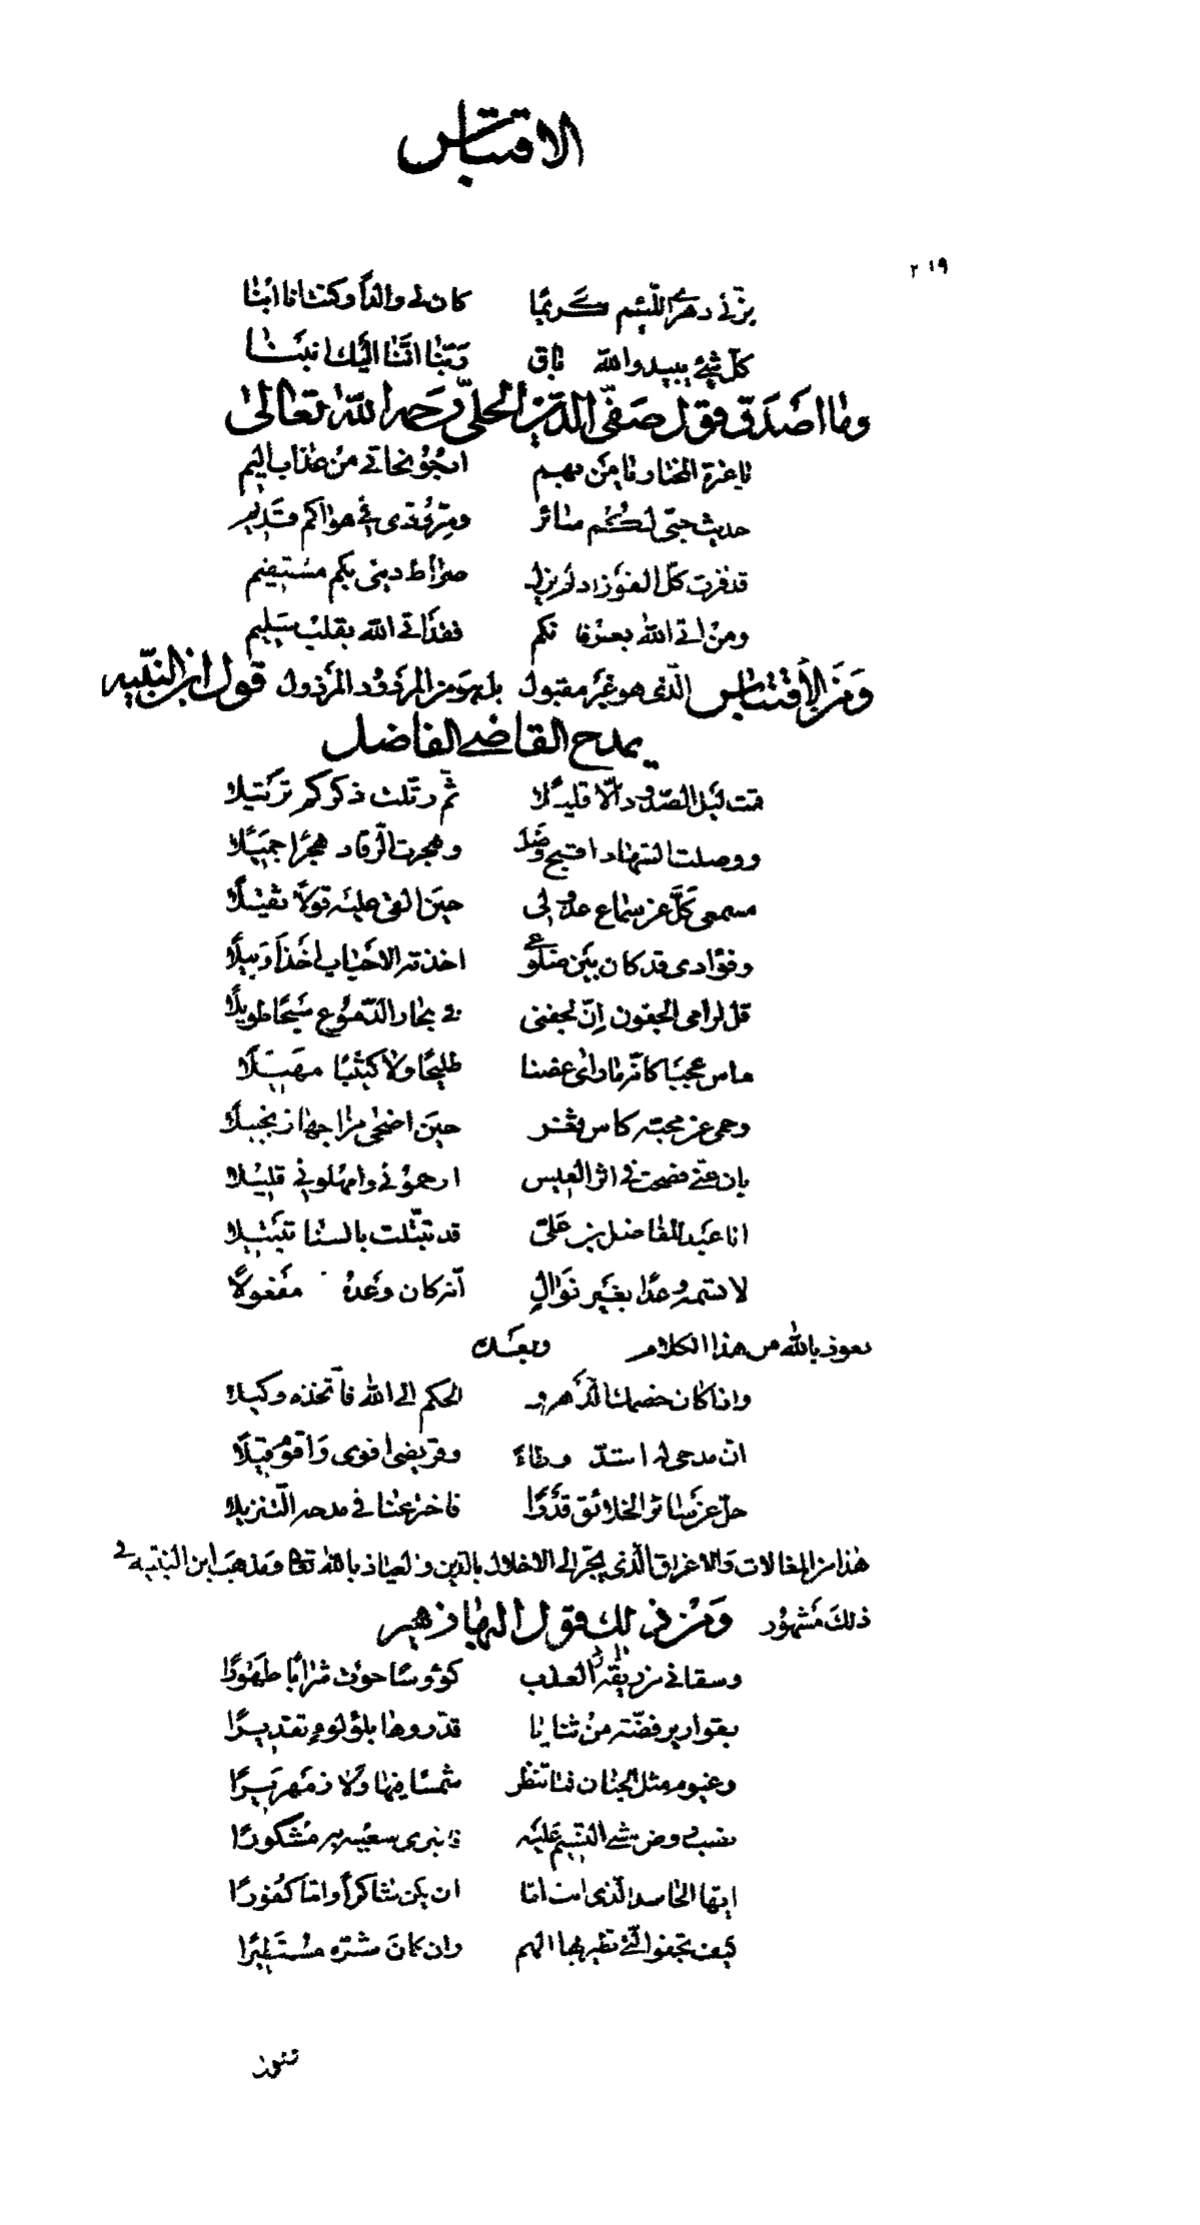 الاقتباس
٢١٩
بزّني دهري اللّئيم كريمًا كان لي والداً وكنت انا ابنا
كلّ شيء يبيد والله باق ربّنا انّنا اليك انبنا
وما اصدق قول صفّي الدّين الحلّي رحمه الله تعالى
يا عترة المختار يا من بهم ارجو نجاتي من عذاب اليم
حديث حبّي لكم سائر وسرّ ودّي في هواكم مقيم
قد فزت كلّ الفوز اذ لم يزل صراط ديني بكم مستقيم
ومن اتى الله بعرفانكم فقد اتى الله بقلب سليم
ومن الاقتباس الّذي هو غير مقبول بل هو من المردود المرذول قول ابن النّبيه
يمدح القاضي الفاضل
قمت ليل الصّدود الّا قليلا ثمّ رتّلت ذكركم ترتيلا
ووصلت السّهاد اقبح وصل وهجرت الرّقاد هجرا جميلا
مسمعي كلّ عن سماع عذولي حين القى عليه قولا ثقيلا
وفؤادي قد كان بين ضلوعي اخذته الاحباب اخذا وبيلا
قل لرامي الجفون انّ لجفني في بحار الدّموع سبحا طويلا
ماس عجبا كانّه ما راى غصنا طليحا ولا كثيبا مهيلا
وحمى عن محبّه كاس ثغر حين اضحى مزاجها زنجبيلا
بان عنّي فصحت في اثر العيس ارحموني وامهلوني قليلا
انا عبد للفاضل بن عليّ قد تبتّلت بالثنا تبتيلا
لا تسمه وعدا بغير نوال انّه كان وعده مفعولا
نعوذ بالله من هذا الكلام وبعده
واذا كان خصمك الدّهر و الحكم الى الله فاتّخذه وكيلا
انّ مدحي له اشدّ وطاء وقريضي اقوى واقوم قيلا
جلّ عن سائر الخلائق قدرا فاخترعنا في مدحه التّنزيلا
هذا من المغالات والاغراق الّذي يجرّ الى الاخلال بالدّين والعياذ بالله تعا ومذهب ابن النّبيه في
ذلك مشهور ومن ذلك قول البها زهير
وسقاني من ريقه العذب كؤوسا حوت شرابا طهورا
بقوارير فضّة من ثنايا قدّروها بلؤلؤ تقديرا
وغيوم مثل الجنان فما تنظر شمسا فيها ولا زمهريرا
سعيه مشكورا
ايّها الحاسد الّذي انت امّا ان يكن شاكرا وامّا كفورا
كيف تجفو الّتي يطير بها الهم وان كان شرّه مستطيرا